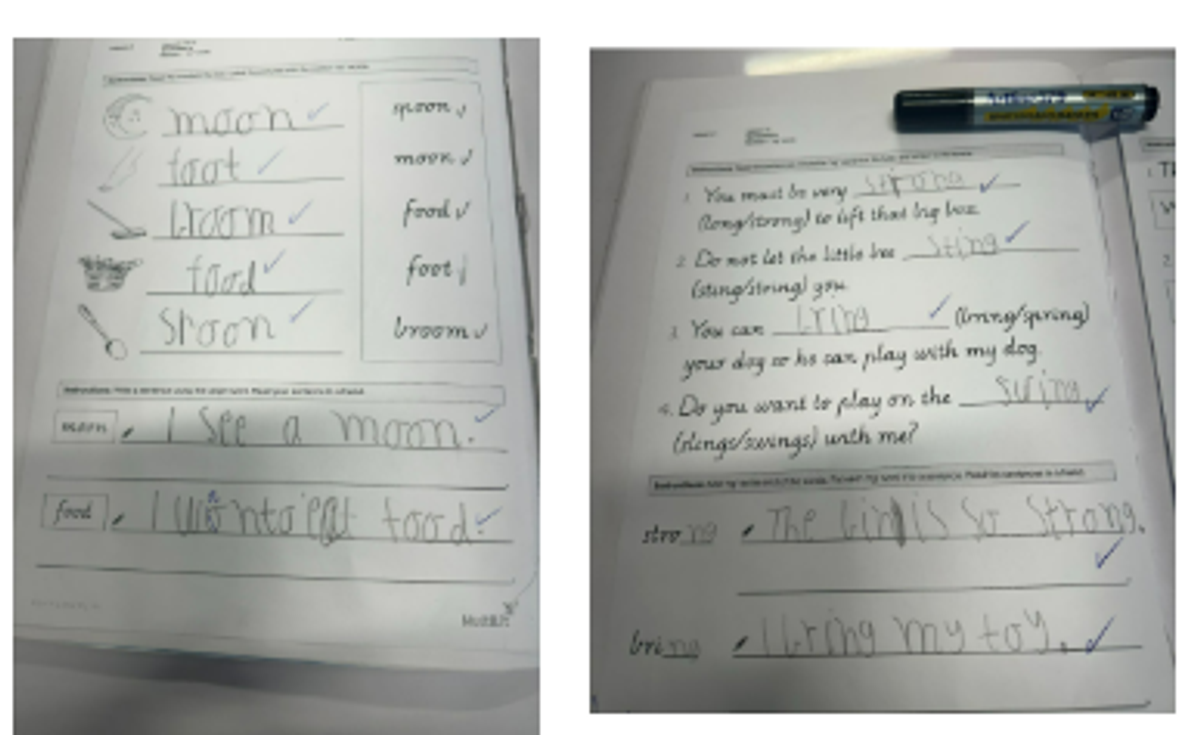 moon
foot
broom
food
spoon
spoon
moon
food
foot
broom
moon I see a moon.
food I want to eat food.
1. You must be very strong
(long/strong) to lift that big box.
2. Do not let the little bee sting
(sting/string) you.
3. You can bring (bring/spring)
your dog so he can play with my dog.
4. Do you want to play on the swing
(slings/swings) with me?
strong The bird is so strong.
bring I bring my toy.